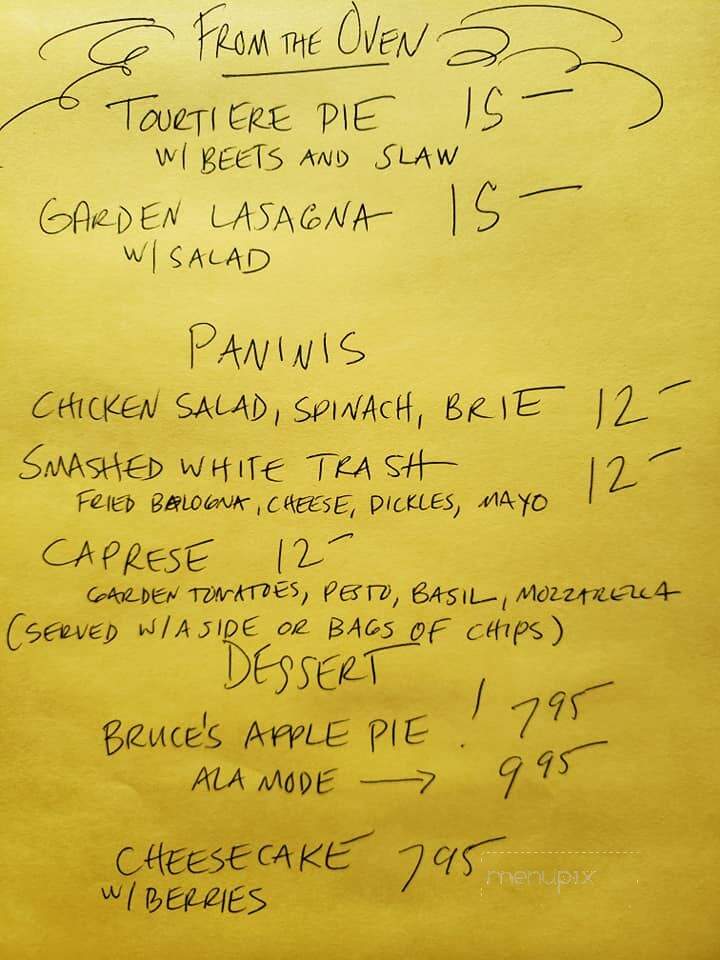 FROM THE OVEN
TOURTIERE PIE 15 —
W/ BEETS AND SLAW
GARDEN LASAGNA 15 —
W/ SALAD
PANINIS
CHICKEN SALAD, SPINACH, BRIE 12 –
SMASHED WHITE TRASH 12 –
FRIED BALOGNA, CHEESE, DICKLES, MAYO
CAPRESE 12 –
GARDEN TOMATOES, PESTO, BASIL, MOZZARELLA
(SERVED W/ A SIDE OR BAGS OF CHIPS)
DESSERT
BRUCE'S APPLE PIE ! 795
ALA MODE → 995
CHEESECAKE 795
W/ BERRIES
menupix